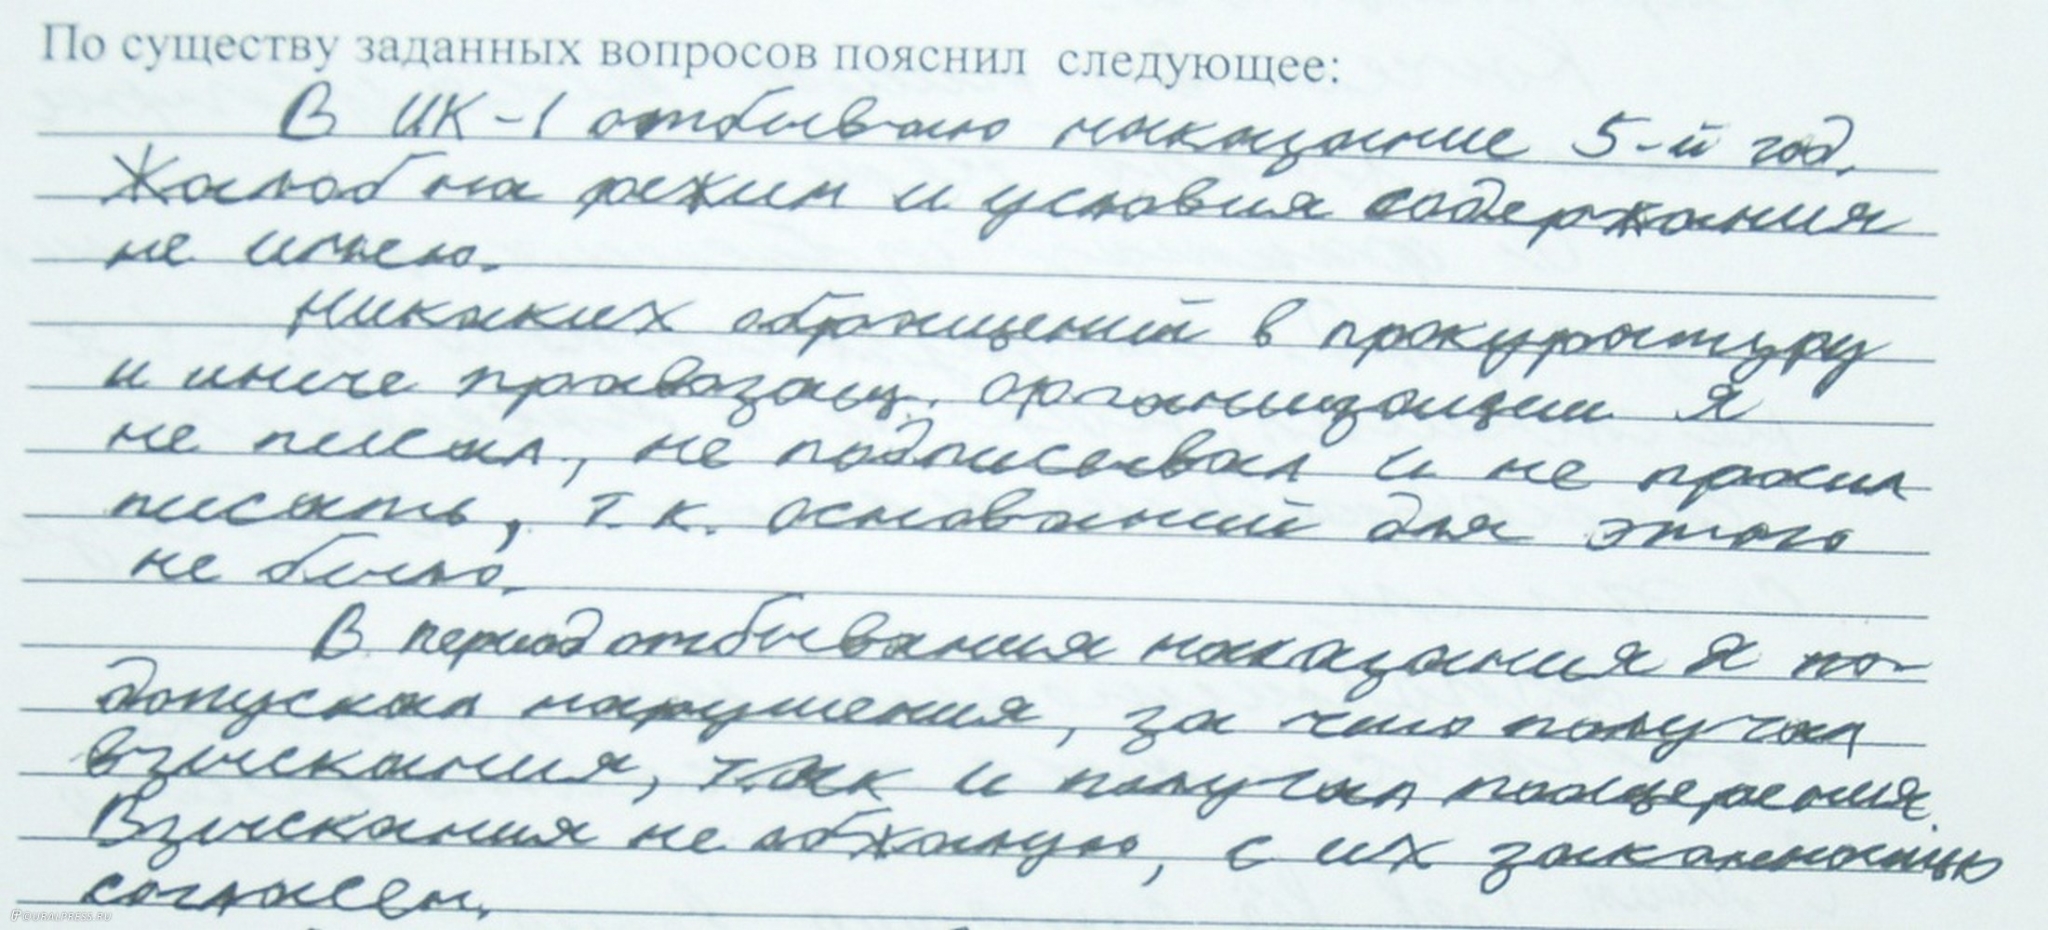 По существу заданных вопросов пояснил следующее:
В ИК-1 отбываю наказание 5-й год.
Жалоб на режим и условия содержания
не имею.
Никаких обращений в прокуратуру
и иные правозащ. организации я
не писал, не подписывал и не просил
писать, т.к. оснований для этого
не было.
В период отбывания наказания я
допускал нарушения, за что получал
взыскания, так и получал поощрения.
Взыскания не обжалую, с их законностью
согласен.
©OURALPRESS.RU